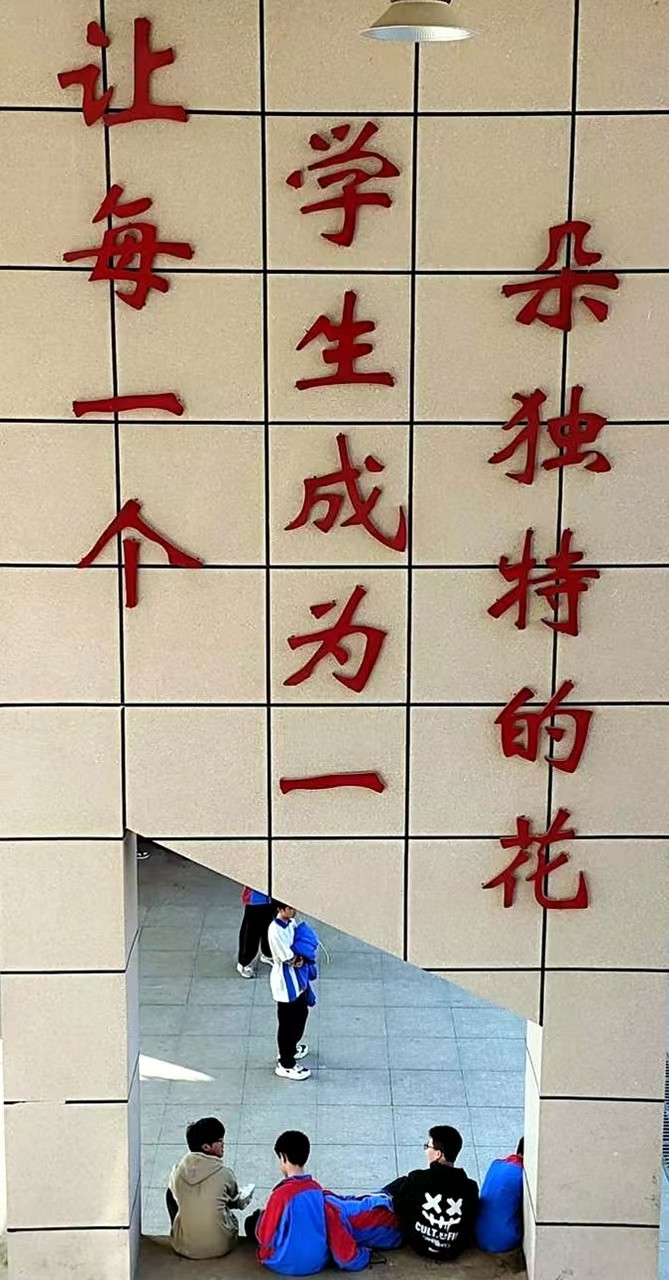 让每一个
学生成为一
朵独特的花